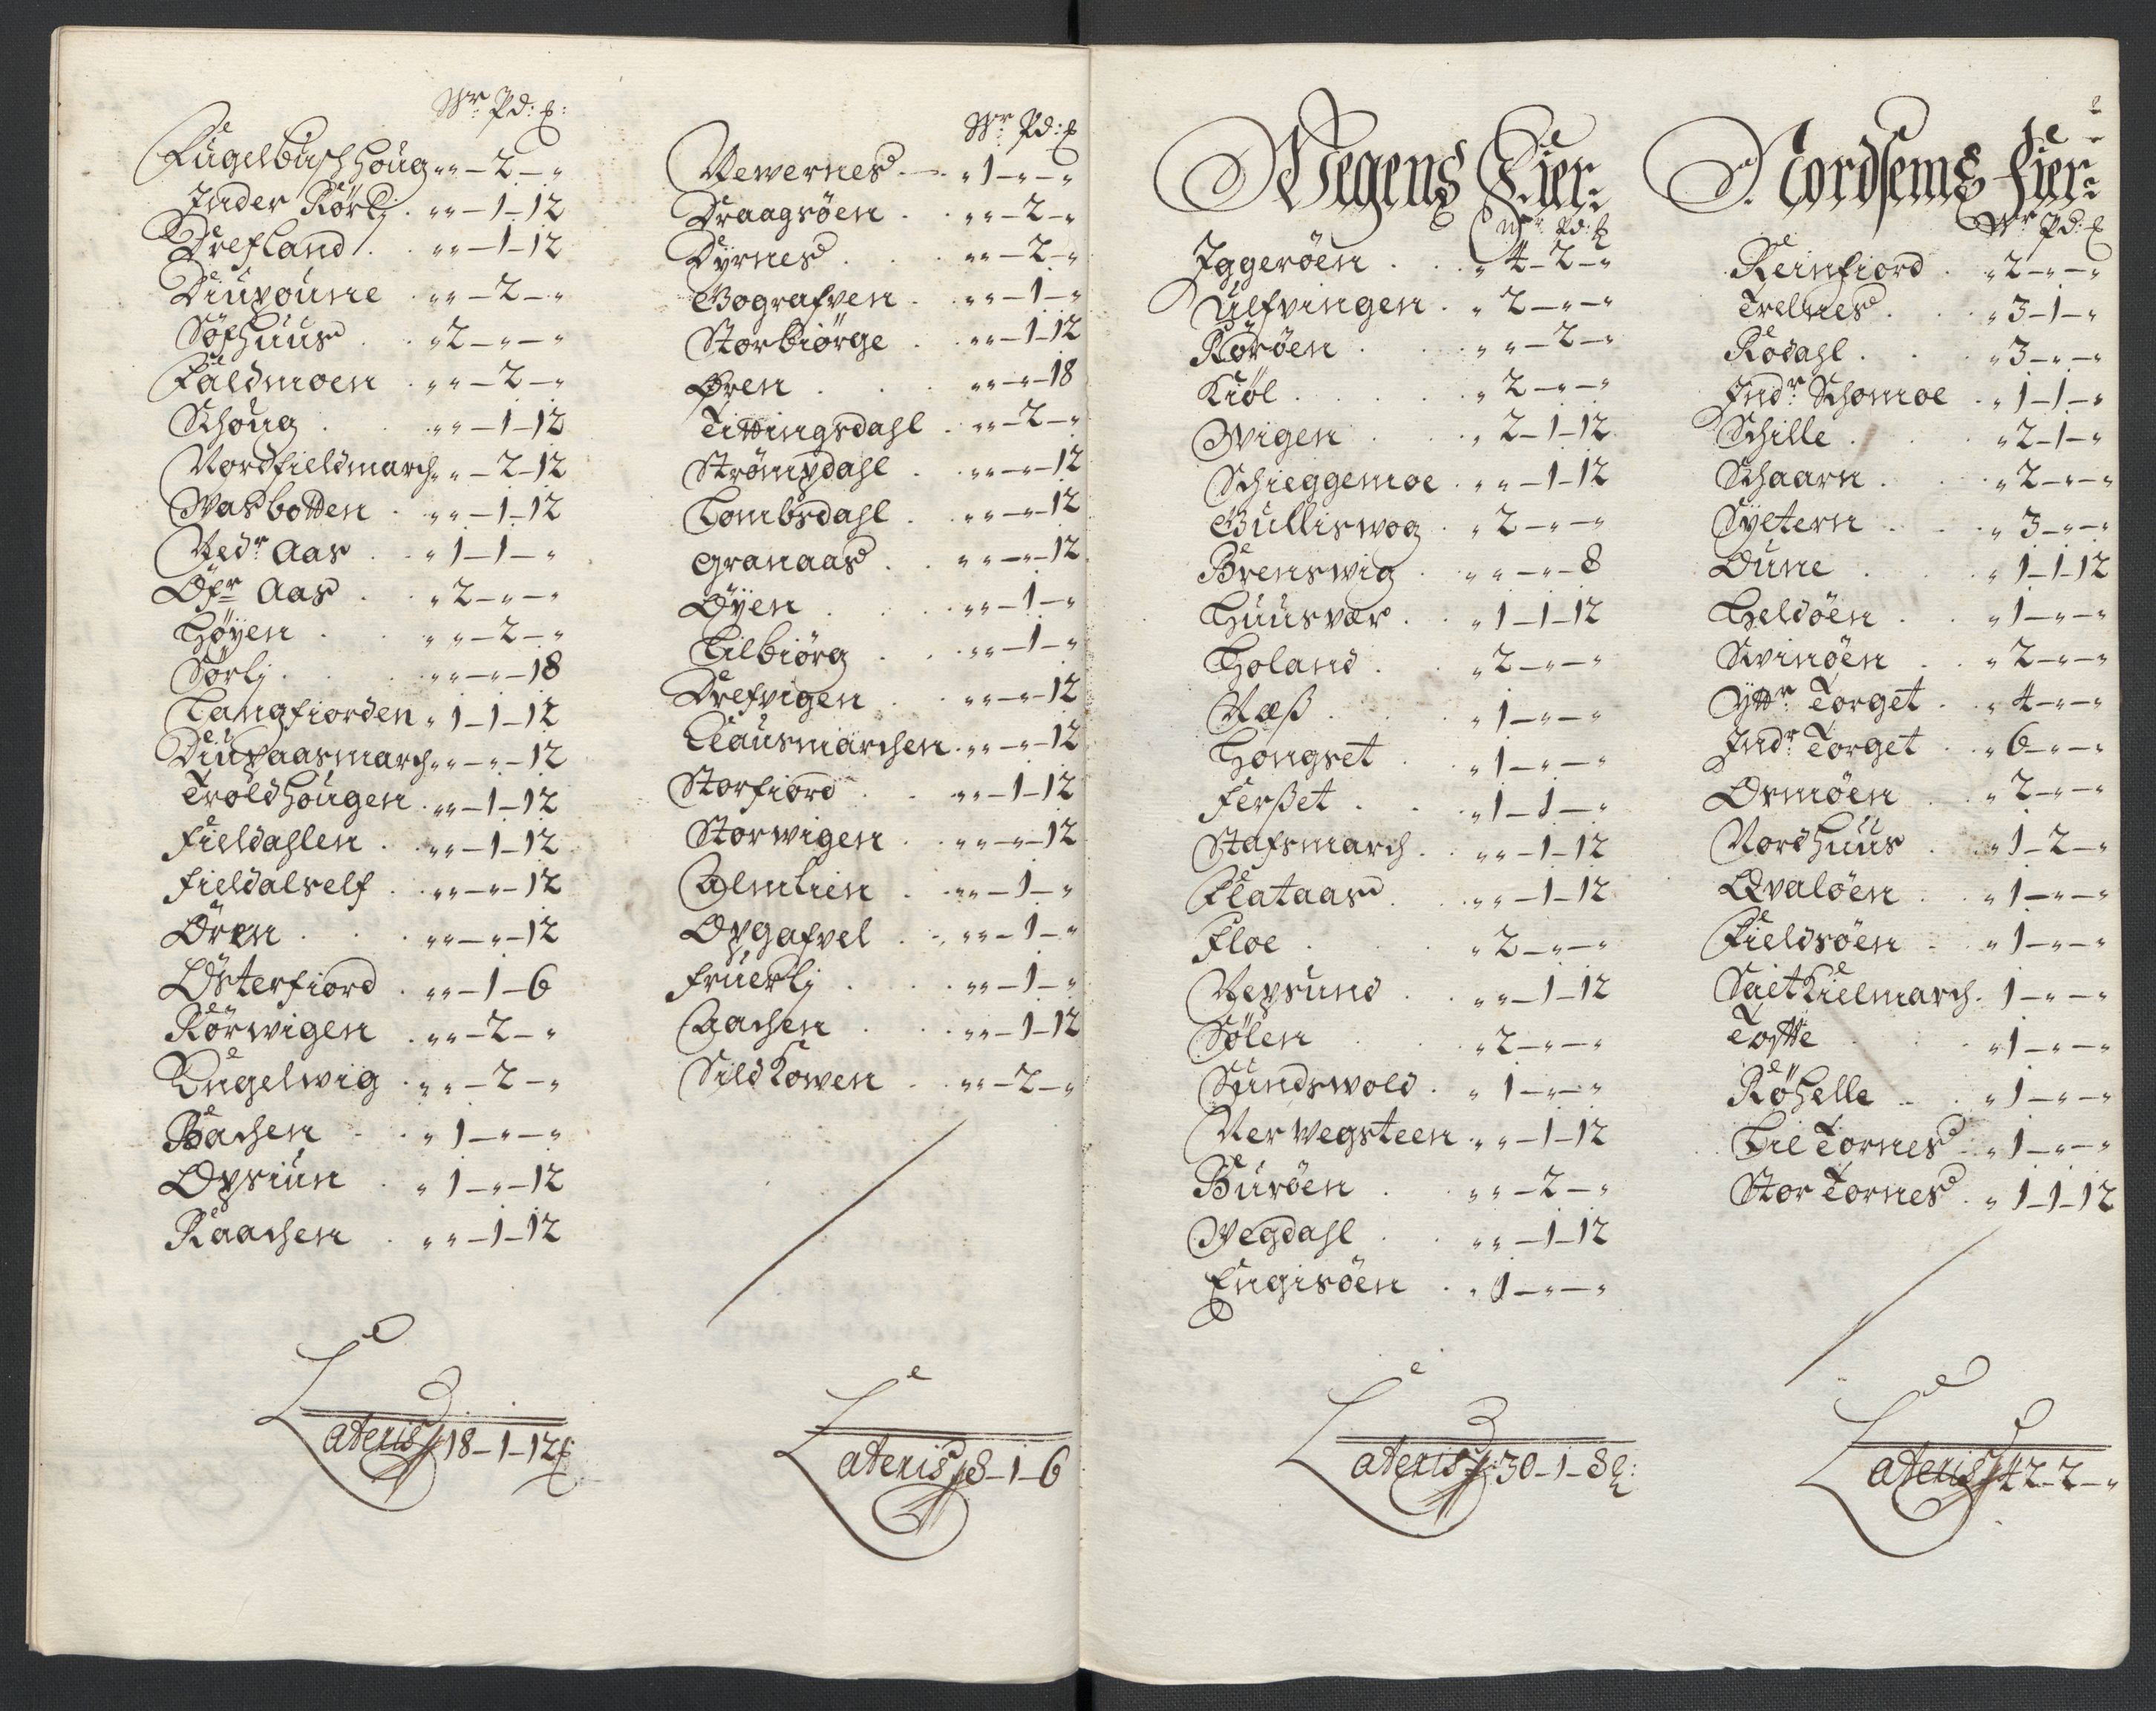 Wr Pd: £:
Fugelbachhoug „ „ – 2 – „
Inder Rörlj . „ „ – 1 – 12
Drefland . „ „ – 1 – 12
Diupoune „ „ – 2 – „
Söfhuus . „ 2 – „ – „
Fuldmoen . „ „ – 2 – „
Schoug . „ „ – 1 – 12
Nordfieldmarch „ „ – 2 – 12
Wasbotten . „ „ – 1 – 12
Nedr Aas . „ 1 – 1 – „
Öfr Aas . „ 2 – „ – „
Höyen . „ „ – 2 – „
Sörlj . „ „ – „ – 18
Langfiorden „ 1 – 1 – 12
Diupaasmarch „ „ – „ – 12
Troldhougen . „ „ – 1 – 12
Fieldahlen . „ „ – 1 – 12
Fieldalself . „ „ – „ – 12
Ören . „ „ – „ – 12
Österfiord . „ „ – 1 – 6
Rörwigen . „ „ – 2 – „
Engelwig . „ „ – 2 – „
Bachen . „ 1 – „ – „
Opsiun . „ 1 – „ – 12
Raachen . „ „ – 1 – 12
Lateris 18 – 1 – 12 £:
Wr Pd: £
Newernes . „ 1 – „ – „
Draagsöen . „ „ – 2 – „
Dyrnes . „ „ – 2 – „
Bografven . „ „ – 1 – „
Storbiörge . „ „ – 1 – 12
Øren . „ „ – „ – 18
Tittingsdahl . „ „ – 2 – „
Strömpdahl . „ „ – „ – 12
Lombsdahl . „ „ – „ – 12
Granaas . „ „ – „ – 12
Öyen . „ „ – 1 – „
Lilbiörg . „ „ – 1 – „
Drefvigen . „ „ – „ – 12
Clausmarchen . „ „ – „ – 12
Storfiord . „ „ – 1 – 12
Storwigen . „ „ – „ – 12
Almlien . „ „ – 1 – „
Opgafvel . „ „ – 1 – „
Fruerlj . „ „ – 1 – „
Aachen . „ „ – 1 – 12
Sildhowen . „ „ – 2 – „
Lateris 8 – 1 – 6
Wegens Fier:
Wr Pd: £
Iggeröen . „ 4 – 2 – „
Ulfvingen . „ 2 – „ – „
Roröen . „ „ – 2 – „
Kiöl . „ 2 – „ – „
Wigen . „ 2 – 1 – 12
Schieggemoe . „ „ – 1 – 12
Gulliswog . „ 2 – „ – „
Brenswig . „ „ – „ – 8
Huusvær . „ 1 – 1 – 12
Holand . „ 2 – „ – „
Næß . „ 1 – „ – „
Hongset . „ 1 – „ – „
Ferßet . „ 1 – 1 – „
Stafsmarch . „ „ – 1 – 12
Flataas . „ „ – 1 – 12
Floe . „ 2 – „ – „
Nepsund . „ „ – 1 – 12
Sölen . „ 2 – „ – „
Sundswold . „ 1 – „ – „
Nerwegsteen . „ „ – 1 – 12
Buröen . „ „ – 2 – „
Wegdahl . „ „ – 1 – 12
Engisöen . „ 1 – „ – „
Lateris 30 – 1 – 8 £:
Nordsems Fier:
Wr Pd: £
Reinfiord . „ 2 – „ – „
Trelnes . „ 3 – 1 – „
Rodahl . „ 3 – „ – „
Indr Schomoe . „ 1 – 1 – „
Schille . „ 2 – 1 – „
Schaarn . „ 2 – „ – „
Syltern . „ 3 – „ – „
Dune . „ 1 – 1 – 12
Heldöen . „ 1 – „ – „
Svinöen . „ 2 – „ – „
Yttr Torget . „ 4 – „ – „
Indr Torget . „ 6 – „ – „
Ormöen . „ 2 – „ – „
Nordhuus . „ 1 – 2 – „
Qvalöen . „ 1 – „ – „
Fieldsöen . „ 1 – „ – „
Saltkielmarch . 1 – „ – „
Tofte . „ 1 – „ – „
Röhelle . „ 1 – „ – „
Lil Tornes . „ 1 – „ – „
Stor Tornes . „ 1 – 1 – 12
Lateris 42 – 2 – „